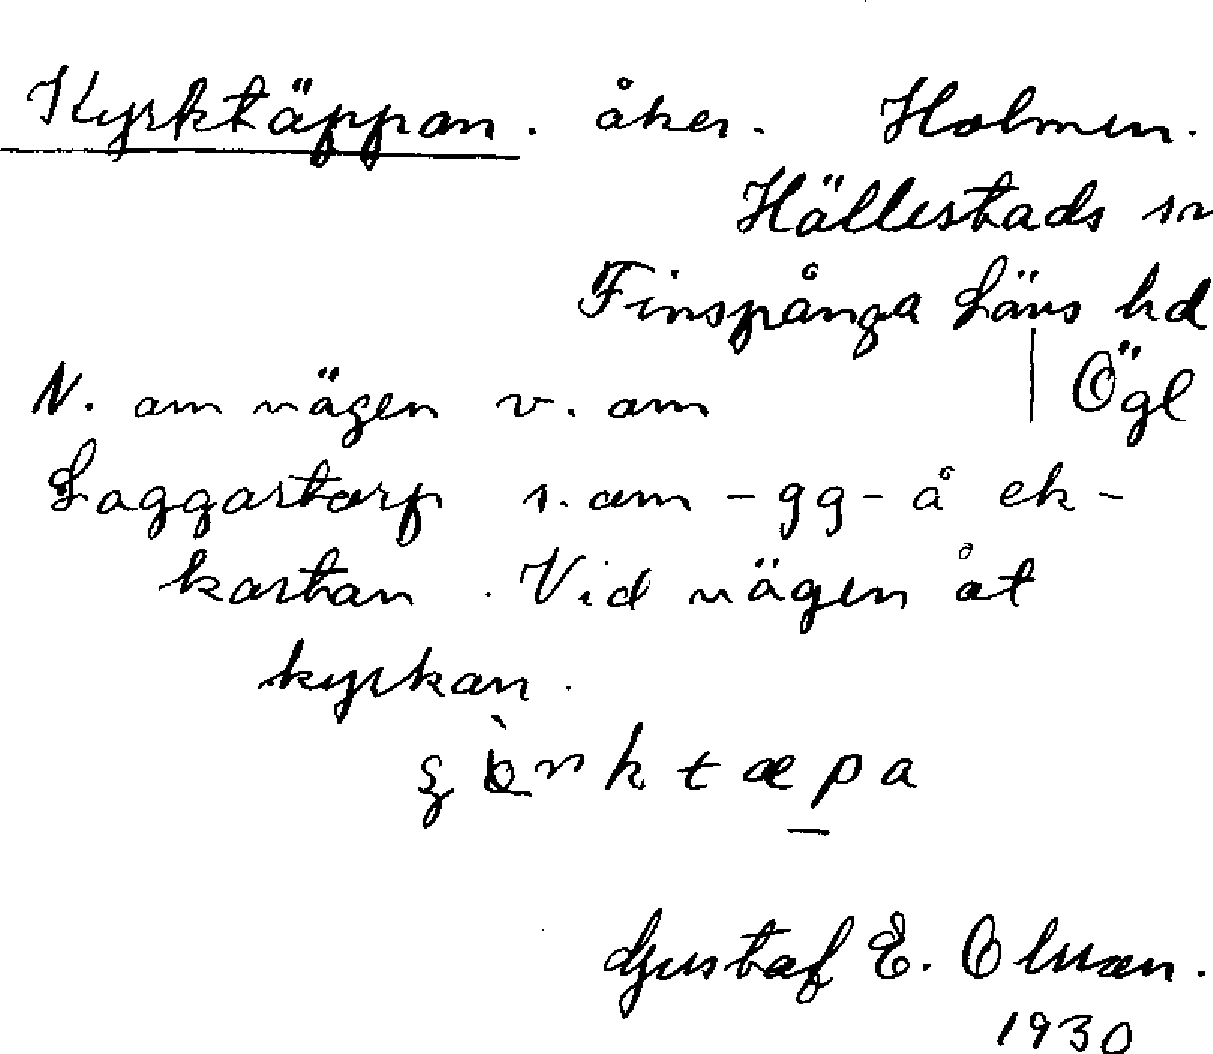 Kyrktäppan. åker. Holmen.
Hällestads sn
Finspånga Läns hd
N. om vägen v. om | Ögl
Laggartorp s. om -gg- å ek-
kartan. Vid vägen åt
kyrkan.
Gustaf E. Olsson.
1930